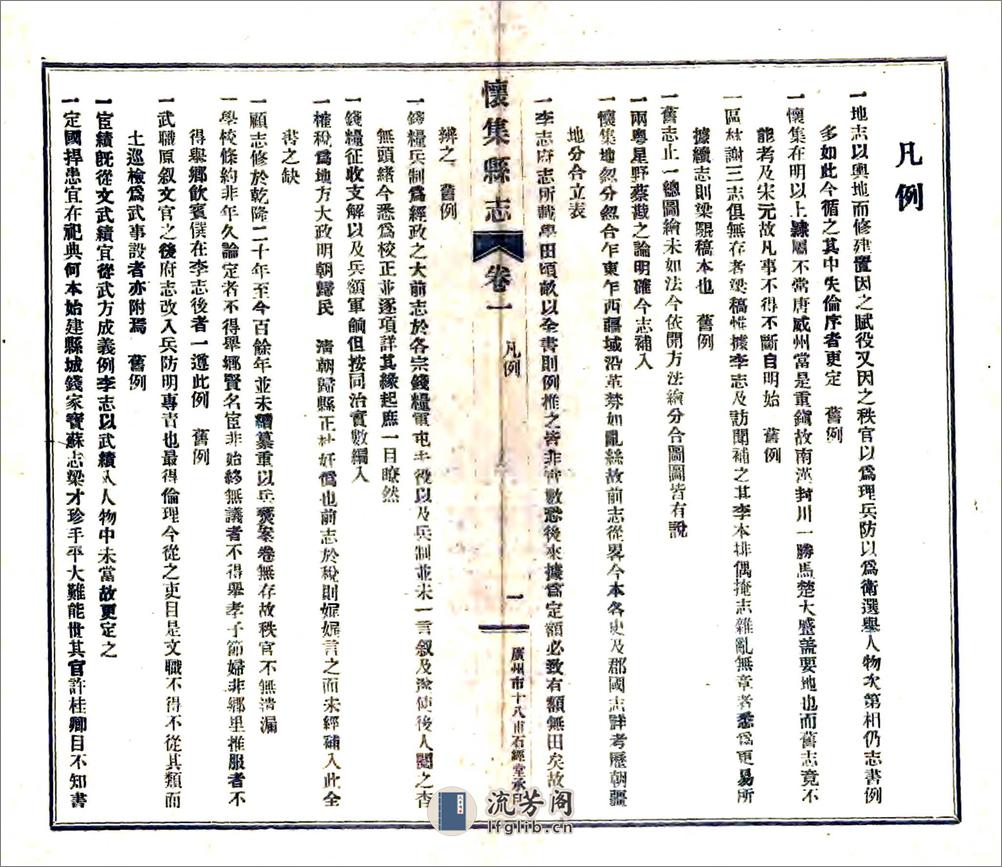 凡例
一地志以輿地而修建置因之賦役又因之秩官以為理兵防以為衛選舉人物次第相仍志書例
多如此今循之其中失倫序者更定　舊例
一懷集在明以上隸屬不常唐威州當是重鎮故南漢封川一勝馬楚大盛蓋要地也而舊志竟不
能考及宋元故凡事不得不斷自明始　舊例
一區林謝三志俱無存者梁稿惟據李志及訪聞補之其李本排偶掩志雜亂無章者悉為更易所
據續志則梁騵稿本也　舊例
一舊志止一總圖繪未如法今依開方法繪分合圖圖皆有說
一兩粵星野蔡戡之論明確今志補入
一懷集地忽分忽合乍東乍西疆域沿革棼如亂絲故前志從畧今本各史及郡國志詳考歷朝疆
地分合立表
一李志府志所載學田頃畝以全書則例推之皆非實數恐後來據為定額必致有額無田矣故
懷集縣志　卷一　凡例　一　廣州市十八甫石經堂承印
辨之　舊例
一錢糧兵制為經政之大前志於各宗錢糧軍屯夫役以及兵制並未一言叙及致使後人閱之杳
無頭緒今悉為校正並逐項詳其緣起庶一目瞭然
一錢糧征收支解以及兵額軍餉但按同治實數編入
一榷稅為地方大政明朝歸民　清朝歸縣正杜奸偽也前志於稅則娓娓言之而未經補入此全
書之缺
一顧志修於乾隆二十年至今百餘年並未續纂重以兵燹案卷無存故秩官不無清漏
一學校條約非年久論定者不得舉鄉賢名宦非始終無議者不得舉孝子節婦非鄉里推服者不
得舉鄉飲賓僕在李志後者一遵此例　舊例
一武職原叙文官之後府志改入兵防明專責也最得倫理今從之吏目是文職不得不從其類而
土巡檢為武事設者亦附焉　舊例
一宦績旣從文武績宜從武方成義例李志以武績入人物中未當故更定之
一定國捍患宜在祀典何本始建縣城錢家寶蘇志梁才珍手平大難能世其官許桂卿目不知書
流芳阁
lfglib.cn